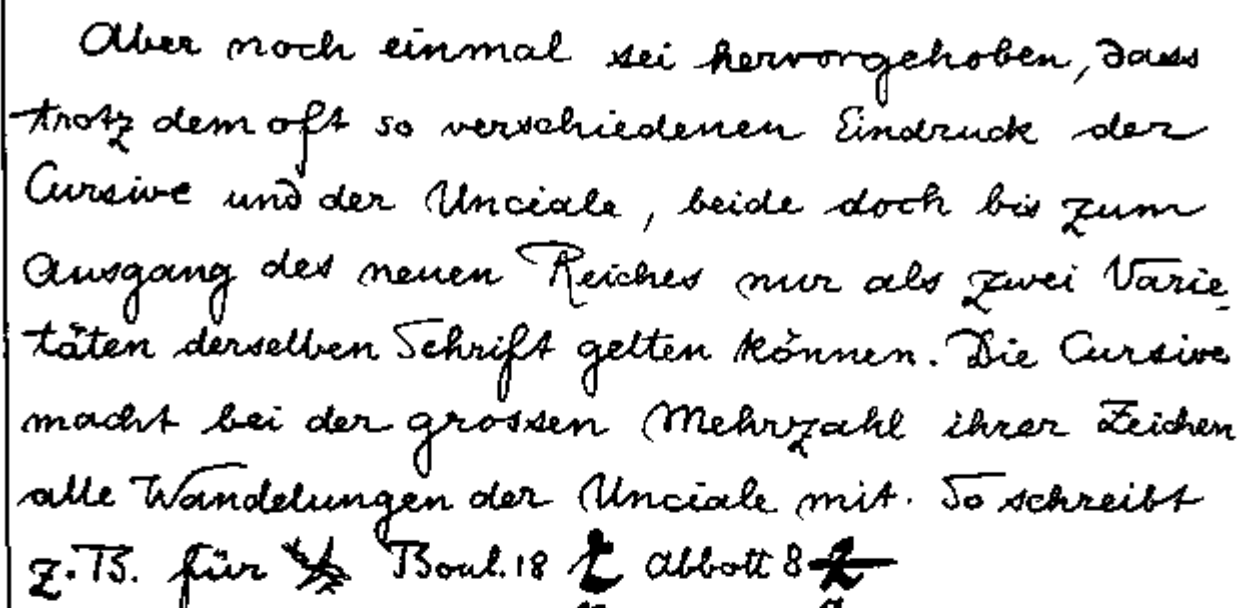 Aber noch einmal sei hervorgehoben, dass
trotz dem oft so verschiedenen Eindruck der
Cursive und der Unciale, beide doch bis zum
Ausgang des neuen Reiches nur als zwei Varie-
täten derselben Schrift gelten können. Die Cursive
macht bei der grossen Mehrzahl ihrer Zeichen
alle Wandelungen der Unciale mit. So schreibt
z. B. für Boul. 18 Abbott 8